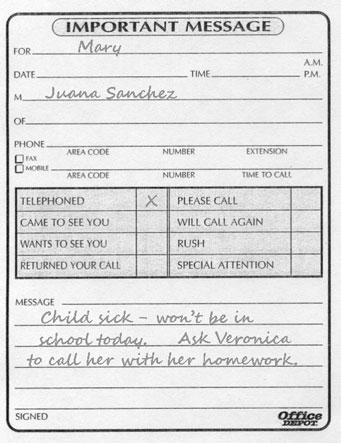 IMPORTANT MESSAGE
FOR Mary
A.M.
DATE TIME P.M.
M Juana Sanchez
OF
PHONE
AREA CODE NUMBER EXTENSION
FAX
MOBILE
AREA CODE NUMBER TIME TO CALL
TELEPHONED X PLEASE CALL
CAME TO SEE YOU WILL CALL AGAIN
WANTS TO SEE YOU RUSH
RETURNED YOUR CALL SPECIAL ATTENTION
MESSAGE
Child sick - won't be in
school today. Ask Veronica
to call her with her homework.
SIGNED Office DEPOT